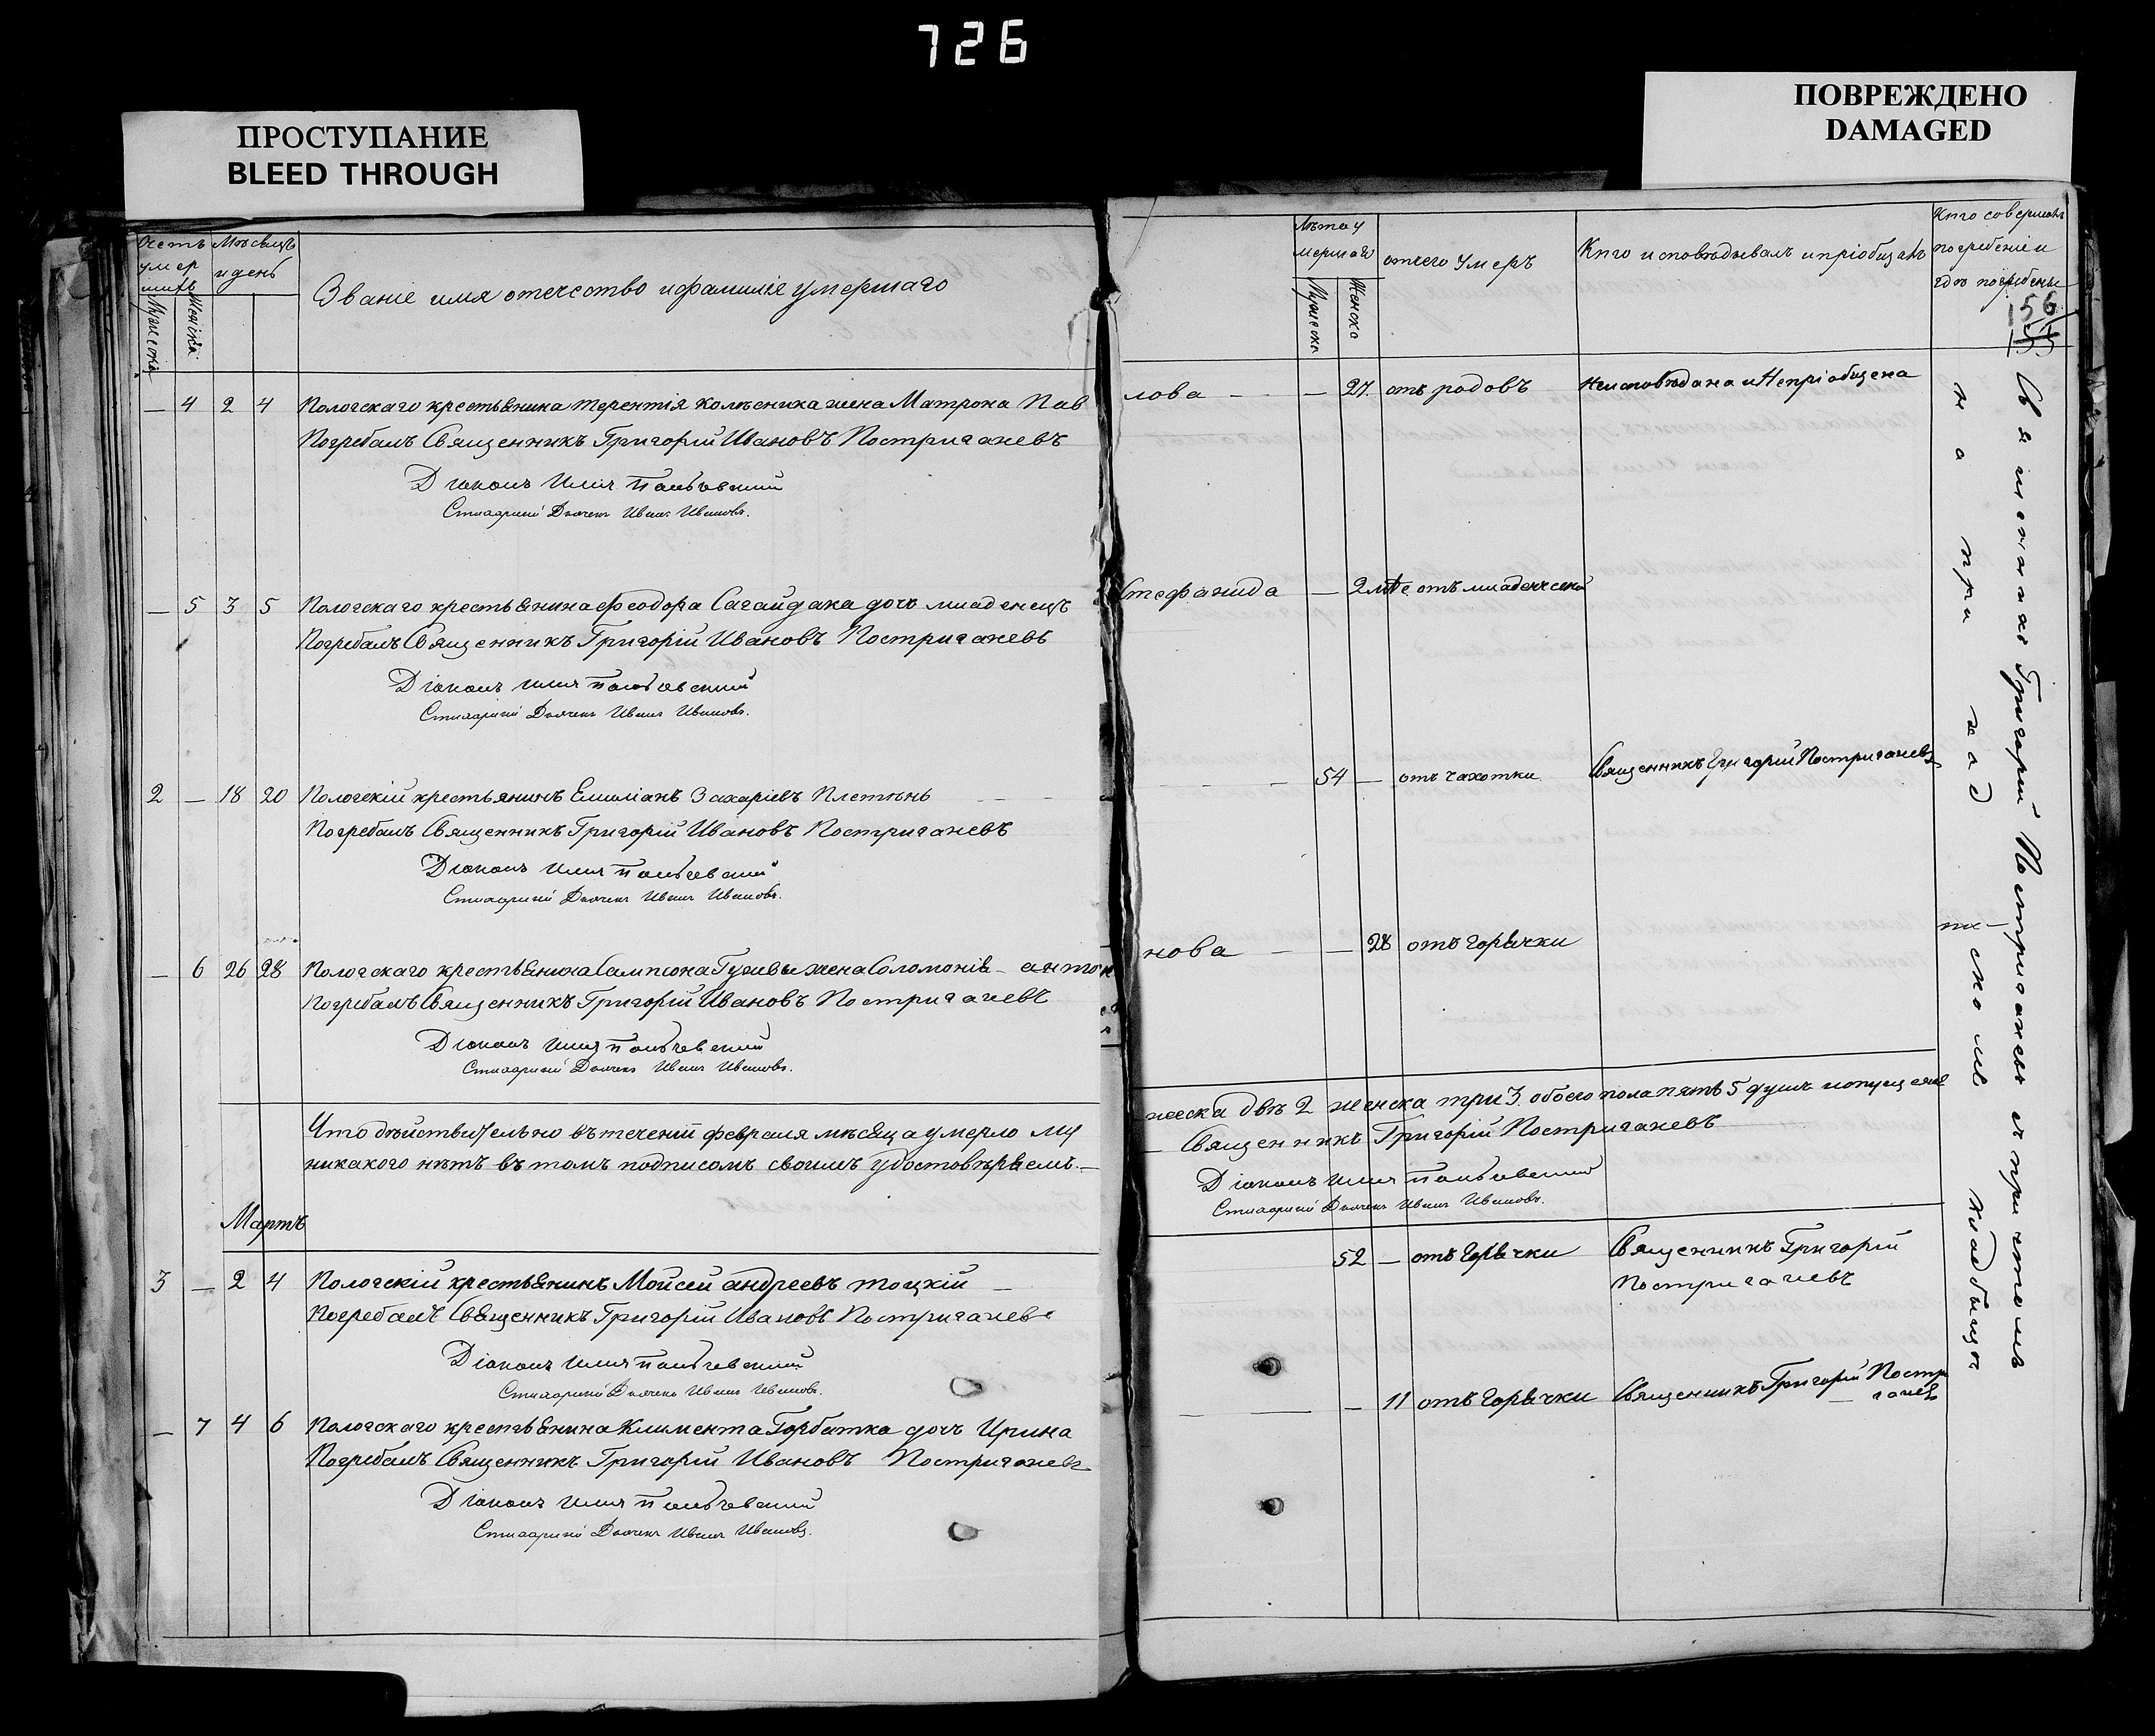 726
ПРОСТУПАНИЕ
BLEED THROUGH
ПОВРЕЖДЕНО
DAMAGED
Счетъ умершихъ
Мужеска
Женска
Мѣсяцъ и день
Званіе имя отечество и фамиліе умершаго
Лѣта умершаго
Мужеска
Женска
отчего умеръ
Кто исповѣдывалъ и пріобщалъ
Кто совершалъ погребеніе и гдѣ погребены
156
— 4 2 4 Пологскаго крестьянина терентія колесника жена Матрона Пав лова — — 27. отъ родовъ Неисповѣдана и Непріобщена
Погребалъ Священникъ Григорій Ивановъ Постригачевъ
Діаконъ
Дьячекъ Иванъ Ивановъ.
— 5 3 5 Пологскаго крестьянина феодора Сагайдака дочь младенецъ Стефанида — 2 лѣтъ отъ младенческой
Погребалъ Священникъ Григорій Ивановъ Постригачевъ
Діаконъ
Дьячекъ Иванъ Ивановъ.
2 — 18 20 Пологскій крестьянинъ Емиліанъ Захаріевъ Плетѣнь — 54 — отъ чахотки Священникъ Григорій Постригачевъ
Погребалъ Священникъ Григорій Ивановъ Постригачевъ
Діаконъ
Дьячекъ Иванъ Ивановъ.
— 6 26 28 Пологскаго крестьянина Сампсона жена Соломонія — антон нова — — 28 отъ горячки
Погребалъ Священникъ Григорій Ивановъ Постригачевъ
Діаконъ
Дьячекъ Иванъ Ивановъ.
Что дѣйствительно въ теченіи февраля мѣсяца умерло му жеска двѣ 2 женска три 3. обоего пола пять 5 душъ
никакого нѣтъ въ томъ подписомъ своимъ удостовѣряемъ. — Священникъ Григорій Постригачевъ
Діаконъ
Дьячекъ Иванъ Ивановъ.
Мартъ
3 — 2 4 Пологскій крестьянинъ Мойсей андреевъ тоцкій — 52 — отъ горячки Священникъ Григорій
Постригачевъ
Погребалъ Священникъ Григорій Ивановъ Постригачевъ
Діаконъ
Дьячекъ Иванъ Ивановъ.
— 7 4 6 Пологскаго крестьянина Климента Горбатка дочь Ирина — — 11 отъ горячки Священникъ Григорій Постри
гачевъ
Погребалъ Священникъ Григорій Ивановъ Постригачевъ
Діаконъ
Дьячекъ Иванъ Ивановъ.
Священникъ Григорій Постригачевъ съ причтомъ
на приходскомъ кладбищѣ